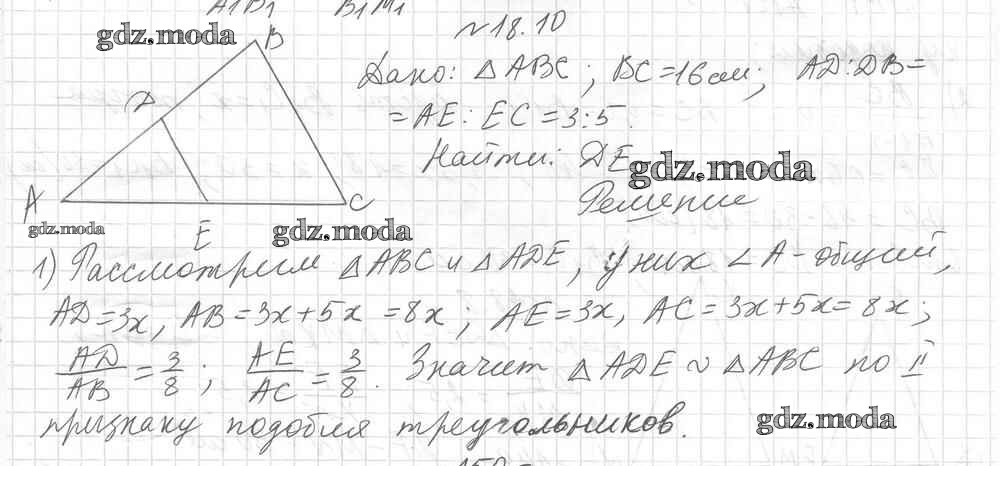 A1B1 B1M1
№18.10
gdz.moda
B
Дано: △ABC; BC=16см; AD:DB=
D
=AE:EC=3:5.
Найти: DE
gdz.moda
Решение
A
C
gdz.moda
E
gdz.moda
1) Рассмотрим △ABC и △ADE, у них ∠A-общий,
AD=3x, AB=3x+5x=8x; AE=3x, AC=3x+5x=8x;
AD/AB=3/8; AE/AC=3/8. Значит △ADE∾△ABC по II
признаку подобия треугольников.
gdz.moda